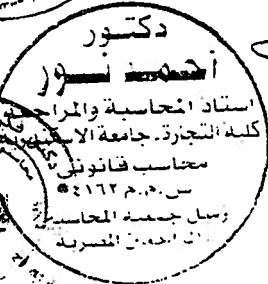 دكتور
أحمد نور
استاذ المحاسبة والمراجعة
كلية التجارة - جامعة الاسكندرية
محاسب قانونى
س.م.م ٤١٦٢
زميل جمعية المحاسبين